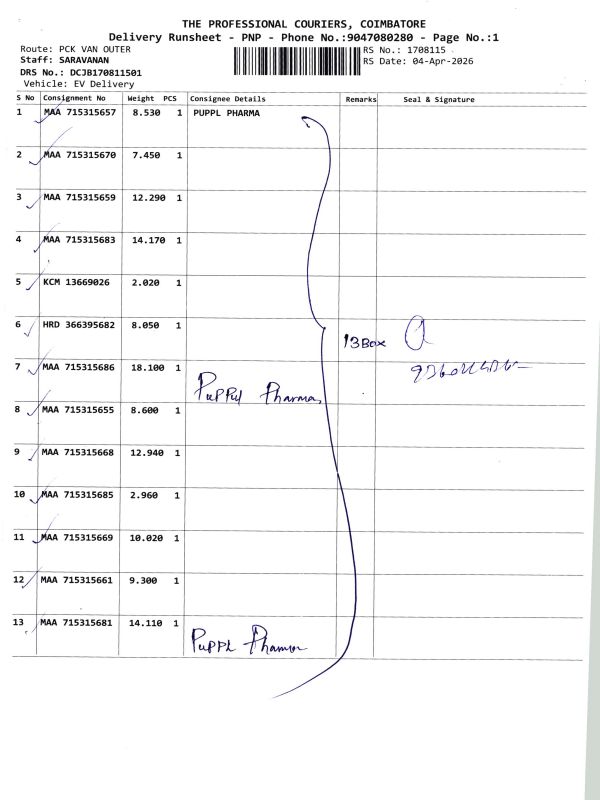 THE PROFESSIONAL COURIERS, COIMBATORE
Delivery Runsheet - PNP - Phone No.:9047080280 - Page No.:1
Route: PCK VAN OUTER
RS No.: 1708115
Staff: SARAVANAN
RS Date: 04-Apr-2026
DRS No.: DCJB170811501
Vehicle: EV Delivery
S No Consignment No Weight PCS Consignee Details Remarks Seal & Signature
1 MAA 715315657 8.530 1 PUPPL PHARMA
2 MAA 715315670 7.450 1
3 MAA 715315659 12.290 1
4 MAA 715315683 14.170 1
5 KCM 13669026 2.020 1
6 HRD 366395682 8.050 1
13 Box
7 MAA 715315686 18.100 1
Puppl Pharma
8 MAA 715315655 8.600 1
9 MAA 715315668 12.940 1
10 MAA 715315685 2.960 1
11 MAA 715315669 10.020 1
12 MAA 715315661 9.300 1
13 MAA 715315681 14.110 1
Puppl Pharma